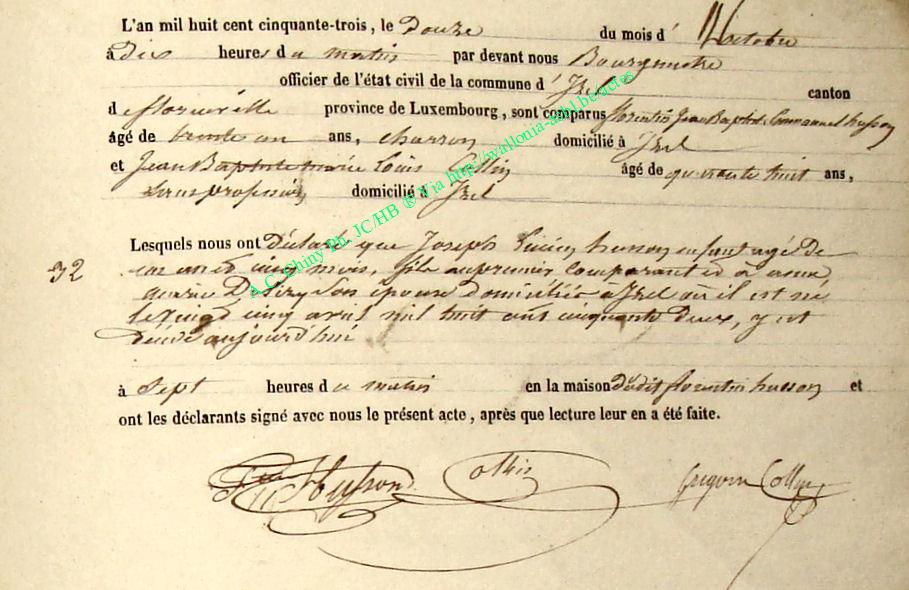 L'an mil huit cent cinquante-trois, le Douze du mois d' octobre
à Dix heures du matin par devant nous Bourgmestre
officier de l'état civil de la commune d' Izel canton
d florenville province de Luxembourg, sont comparus florentin Jean Baptiste Emmanuel husson
âgé de trente un ans, charron domicilié à Izel
et Jean Baptiste marie Louis Collin âgé de quarante huit ans,
sans profession domicilié à Izel
Lesquels nous ont Déclaré que Joseph Lucien husson enfant agé de
32
un an et cinq mois, fils au premier comparant et à anne
marie Désirée son épouse domiciliée à Izel où il est né
le vingt cinq avril mil huit cent cinquante Deux, y est
Décédé aujourd'hui
à Sept heures du matin en la maison dudit florentin husson et
ont les déclarants signé avec nous le présent acte, après que lecture leur en a été faite.
Husson Collin Grégoire Collin
A.C. Chiny Ph. JC/HB ® Via http://wallonia-asbl.be/actes